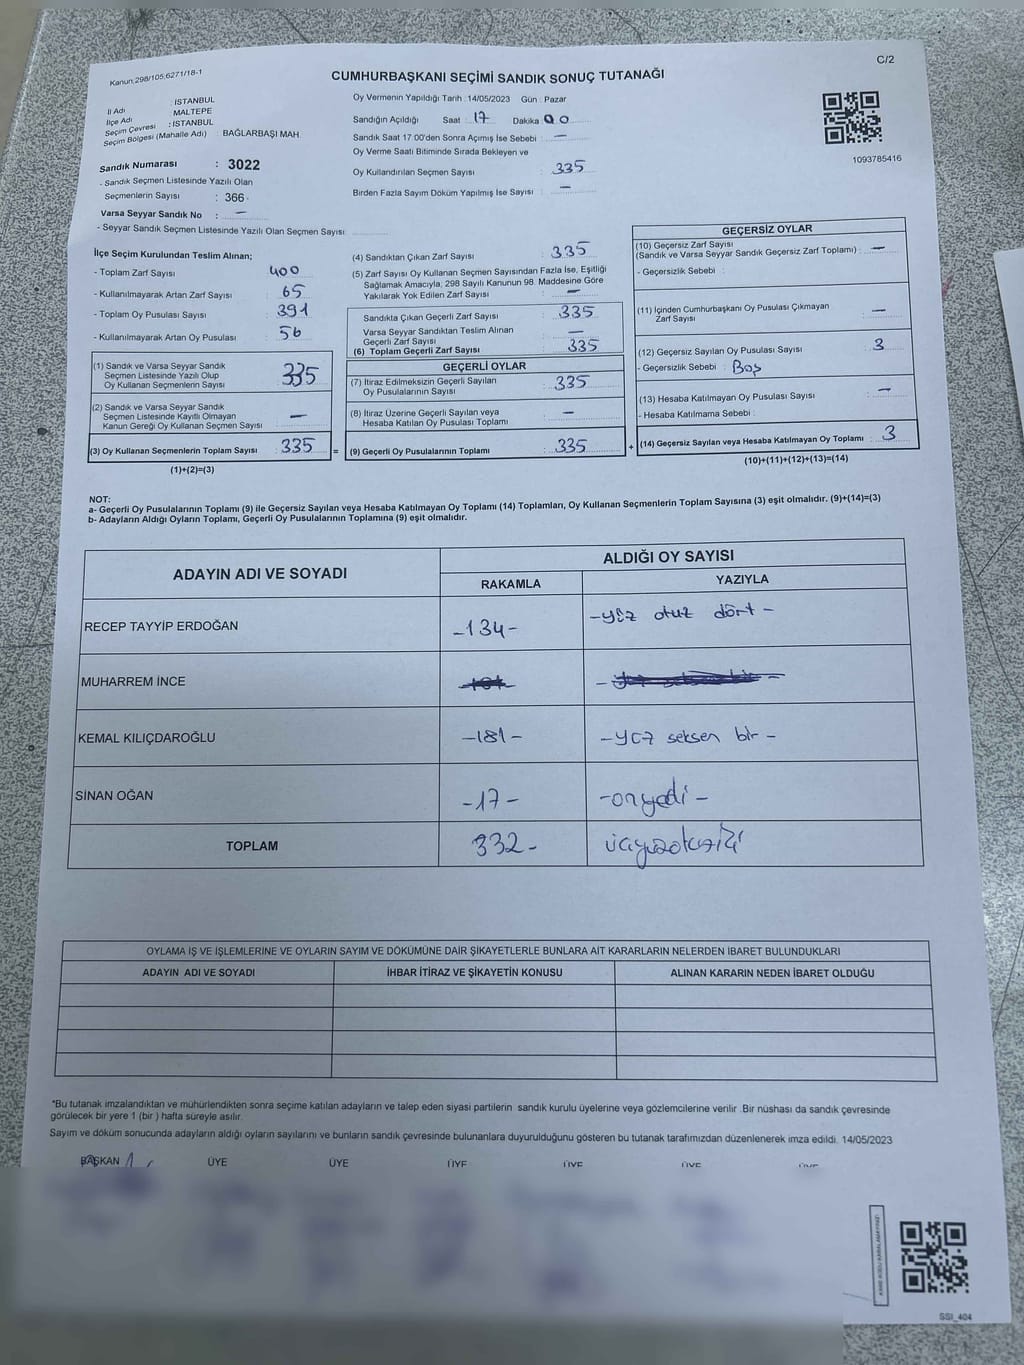 Kanun:298/105,6271/18-1
C/2
CUMHURBAŞKANI SEÇİMİ SANDIK SONUÇ TUTANAĞI
İl Adı : İSTANBUL
İlçe Adı : MALTEPE
Seçim Çevresi : İSTANBUL
Seçim Bölgesi (Mahalle Adı) : BAĞLARBAŞI MAH.
Sandık Numarası : 3022
- Sandık Seçmen Listesinde Yazılı Olan
Seçmenlerin Sayısı : 366
Varsa Seyyar Sandık No : –
- Seyyar Sandık Seçmen Listesinde Yazılı Olan Seçmen Sayısı:
Oy Vermenin Yapıldığı Tarih : 14/05/2023 Gün : Pazar
Sandığın Açıldığı Saat : 17 Dakika 00
Sandık Saat 17:00'den Sonra Açımış İse Sebebi : –
Oy Verme Saati Bitiminde Sırada Bekleyen ve
Oy Kullandırılan Seçmen Sayısı : 335
Birden Fazla Sayım Döküm Yapılmış İse Sayısı : –
1093785416
İlçe Seçim Kurulundan Teslim Alınan;
- Toplam Zarf Sayısı : 400
- Kullanılmayarak Artan Zarf Sayısı : 65
- Toplam Oy Pusulası Sayısı : 391
- Kullanılmayarak Artan Oy Pusulası : 56
(1) Sandık ve Varsa Seyyar Sandık
Seçmen Listesinde Yazılı Olup
Oy Kullanan Seçmenlerin Sayısı : 335
(2) Sandık ve Varsa Seyyar Sandık
Seçmen Listesinde Kayıtlı Olmayan
Kanun Gereği Oy Kullanan Seçmen Sayısı : –
(3) Oy Kullanan Seçmenlerin Toplam Sayısı : 335 =
(1)+(2)=(3)
(4) Sandıktan Çıkan Zarf Sayısı : 335
(5) Zarf Sayısı Oy Kullanan Seçmen Sayısından Fazla İse, Eşitliği
Sağlamak Amacıyla; 298 Sayılı Kanunun 98. Maddesine Göre
Yakılarak Yok Edilen Zarf Sayısı : –
Sandıkta Çıkan Geçerli Zarf Sayısı : 335
Varsa Seyyar Sandıktan Teslim Alınan
Geçerli Zarf Sayısı : –
(6) Toplam Geçerli Zarf Sayısı : 335
GEÇERLİ OYLAR
(7) İtiraz Edilmeksizin Geçerli Sayılan
Oy Pusulasının Sayısı : 335
(8) İtiraz Üzerine Geçerli Sayılan veya
Hesaba Katılan Oy Pusulası Toplamı : –
(9) Geçerli Oy Pusulalarının Toplamı : 335 +
GEÇERSİZ OYLAR
(10) Geçersiz Zarf Sayısı
(Sandık ve Varsa Seyyar Sandık Geçersiz Zarf Toplamı) : –
- Geçersizlik Sebebi :
(11) İçinden Cumhurbaşkanı Oy Pusulası Çıkmayan
Zarf Sayısı : –
(12) Geçersiz Sayılan Oy Pusulası Sayısı : 3
- Geçersizlik Sebebi : Boş
(13) Hesaba Katılmayan Oy Pusulası Sayısı : –
- Hesaba Katılmama Sebebi :
(14) Geçersiz Sayılan veya Hesaba Katılmayan Oy Toplamı : 3
(10)+(11)+(12)+(13)=(14)
NOT:
a- Geçerli Oy Pusulalarının Toplamı (9) ile Geçersiz Sayılan veya Hesaba Katılmayan Oy Toplamı (14) Toplamları, Oy Kullanan Seçmenlerin Toplam Sayısına (3) eşit olmalıdır. (9)+(14)=(3)
b- Adayların Aldığı Oyların Toplamı, Geçerli Oy Pusulalarının Toplamına (9) eşit olmalıdır.
ADAYIN ADI VE SOYADI
ALDIĞI OY SAYISI
RAKAMLA YAZIYLA
RECEP TAYYİP ERDOĞAN -134- -yüz otuz dört-
MUHARREM İNCE
KEMAL KILIÇDAROĞLU -181- -yüz seksen bir-
SİNAN OĞAN -17- -onyedi-
TOPLAM 332- üçyüzotuziki
OYLAMA İŞ VE İŞLEMLERİNE VE OYLARIN SAYIM VE DÖKÜMÜNE DAİR ŞİKAYETLERLE BUNLARA AİT KARARLARIN NELERDEN İBARET BULUNDUKLARI
ADAYIN ADI VE SOYADI İHBAR İTİRAZ VE ŞİKAYETİN KONUSU ALINAN KARARIN NEDEN İBARET OLDUĞU
*Bu tutanak imzalandıktan ve mühürlendikten sonra seçime katılan adayların ve talep eden siyasi partilerin sandık kurulu üyelerine veya gözlemcilerine verilir .Bir nüshası da sandık çevresinde
görülecek bir yere 1 (bir ) hafta süreyle asılır.
Sayım ve döküm sonucunda adayların aldığı oyların sayılarını ve bunların sandık çevresinde bulunanlara duyurulduğunu gösteren bu tutanak tarafımızdan düzenlenerek imza edildi. 14/05/2023
BAŞKAN ÜYE ÜYE ÜYE ÜYE ÜYE ÜYE
SSI_404